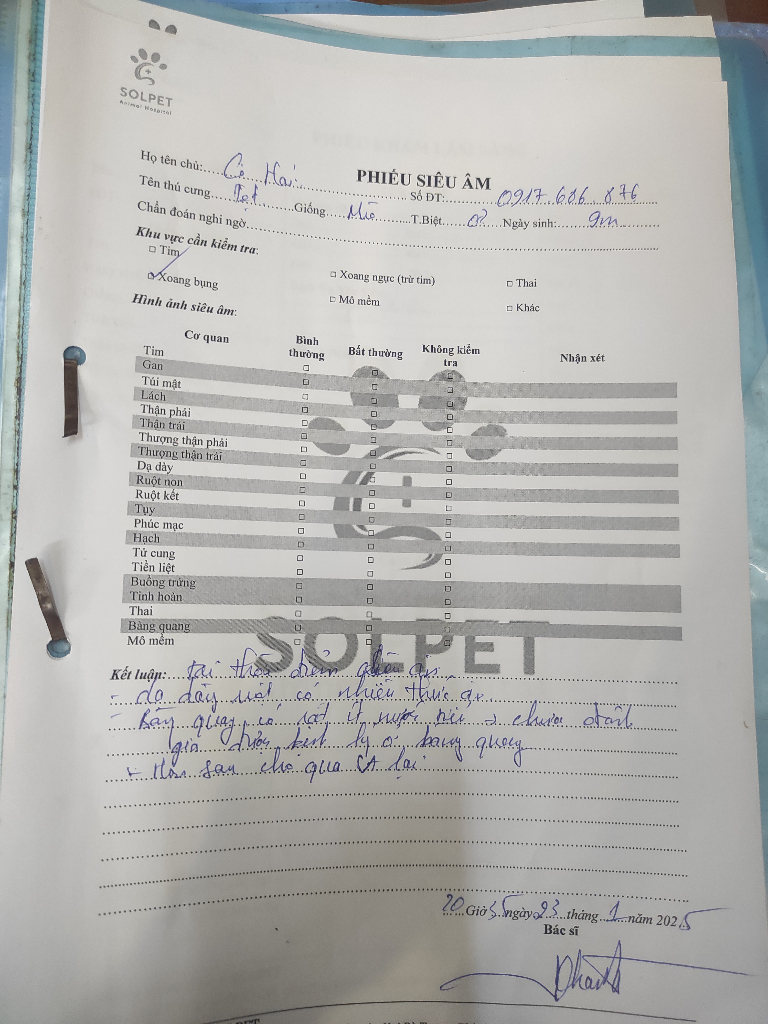 SOLPET
Animal Hospital
PHIẾU SIÊU ÂM
Họ tên chủ: Cô Hai Số ĐT: 0917 686 876
Tên thú cưng Giống T.Biệt Ngày sinh: 9m
Chẩn đoán nghi ngờ
Khu vực cần kiểm tra:
□ Tim
□ Xoang bụng □ Xoang ngực (trừ tim) □ Thai
□ Mô mềm □ Khác
Hình ảnh siêu âm:
Cơ quan Bình thường Bất thường Không kiểm tra Nhận xét
Tim
Gan
Túi mật
Lách
Thận phải
Thận trái
Thượng thận phải
Thượng thận trái
Dạ dày
Ruột non
Ruột kết
Tụy
Phúc mạc
Hạch
Tử cung
Tiền liệt
Buồng trứng
Tinh hoàn
Thai
Bàng quang
Mô mềm
SOLPET
Kết luận: tại thời điểm siêu âm
- dạ dày ruột có nhiều thức ăn
- Bàng quang có rất ít nước tiểu → chưa đánh
giá được bệnh lý ở bàng quang
+ Hôm sau cho qua SA lại
20 Giờ 35 ngày 23 tháng 1 năm 2025
Bác sĩ